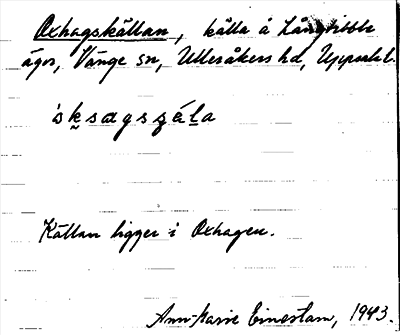 Oxhagskällan, källa å Långtibble
ägor, Vänge sn, Ulleråkers hd, Uppsala l.
Källan ligger i Oxhagen.
Ann-Marie Einerstam, 1943.